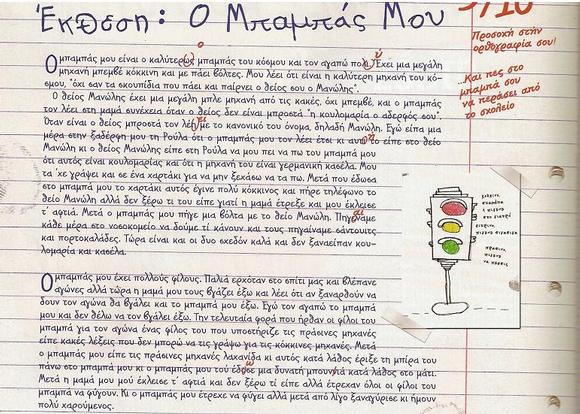 Έκθεση: Ο Μπαμπάς Μου
5/10
Προσοχή στην
ορθογραφία σου!
...Και πες στο
μπαμπά σου
να περάσει από
το σχολείο
Ο μπαμπάς μου είναι ο καλύτερως μπαμπάς του κόσμου και τον αγαπώ πολί. Έχει μια μεγάλη
μηχανή μπεμβέ κόκκινη και με πάει βόλτες. Μου λέει ότι είναι η καλύτερη μηχανή του κό-
σμου, "όχι σαν τα σκουπίδια που πάει και παίρνει ο θείος σου ο Μανώλης".
Ο θείος Μανώλης έχει μια μεγάλη μπλε μηχανή από τις κακές, όχι μπεμβέ, και ο μπαμπάς
τον λέει στη μαμά συνέχεια όταν ο θείος δεν είναι μπροστά "η κουλομαρία ο αδερφός σου".
Όταν είναι ο θείος μπροστά τον λέη με το κανονικό του όνομα, δηλαδή Μανώλη. Εγώ είπα μια
μέρα στην ξαδέρφη μου τη Ρούλα ότι ο μπαμπάς μου τον λέει έτσι κι αυτή το είπε στο θείο
Μανώλη κι ο θείος Μανώλης είπε στη Ρούλα να μου πει να πω του μπαμπά μου
ότι αυτός είναι κουλομαρίας και ότι η μηχανή του είναι γερμανική κασέλα. Μου
τα 'χε γράψει και σε ένα χαρτάκι για να μην ξεχάσω να τα πω. Μετά που έδωσα
στο μπαμπά μου το χαρτάκι αυτός έγινε πολύ κόκκινος και πήρε τηλέφωνο το
θείο Μανώλη αλλά δεν ξέρω τι του είπε γιατί η μαμά έτρεξε και μου έκλεισε
τ' αφτιά. Μετά ο μπαμπάς μου πήγε μια βόλτα με το θείο Μανώλη. Πηγέναμε
κάθε μέρα στο νοσοκομείο να δούμε τί κάνουν και τους πηγαίναμε σάντουιτς
και πορτοκαλάδες. Τώρα είναι και οι δυο σχεδόν καλά και δεν ξαναείπαν κου-
λομαρία και κασέλα.
Ο μπαμπάς μου έχει πολλούς φίλους. Παλιά ερχόταν στο σπίτι μας και βλέπανε
αγώνες αλλά τώρα η μαμά μου τους βγάζει έξω και λέει ότι αν ξαναρθούν να
δουν τον αγώνα θα βγάλει και το μπαμπά μου έξω. Εγώ τον αγαπώ το μπαμπά
μου και δεν θέλω να τον βγάλει έξω. Την τελευταία φορά που ήρθαν οι φίλοι του
μπαμπά για τον αγώνα ένας φίλος του που υποστήριζε τις πράσινες μηχανές
είπε κακές λέξεις που δεν μπορώ να τις γράψω για τις κόκκινες μηχανές. Μετά
ο μπαμπάς μου είπε τις πράσινες μηχανές λαχανίδα κι αυτός κατά λάθος έριξε τη μπίρα του
πάνω στο μπαμπά μου κι ο μπαμπάς μου τού έδοσε μια δυνατή μπουνιά κατά λάθος στο μάτι.
Μετά η μαμά μού έκλεισε τ' αφτιά και δεν ξέρω τί είπε αλλά έτρεχαν όλοι οι φίλοι του
μπαμπά να φύγουν. Κι ο μπαμπάς μου έτρεχε να φύγει αλλά μετά από λίγο ξαναγύρισε κι ήμουν
πολύ χαρούμενος.